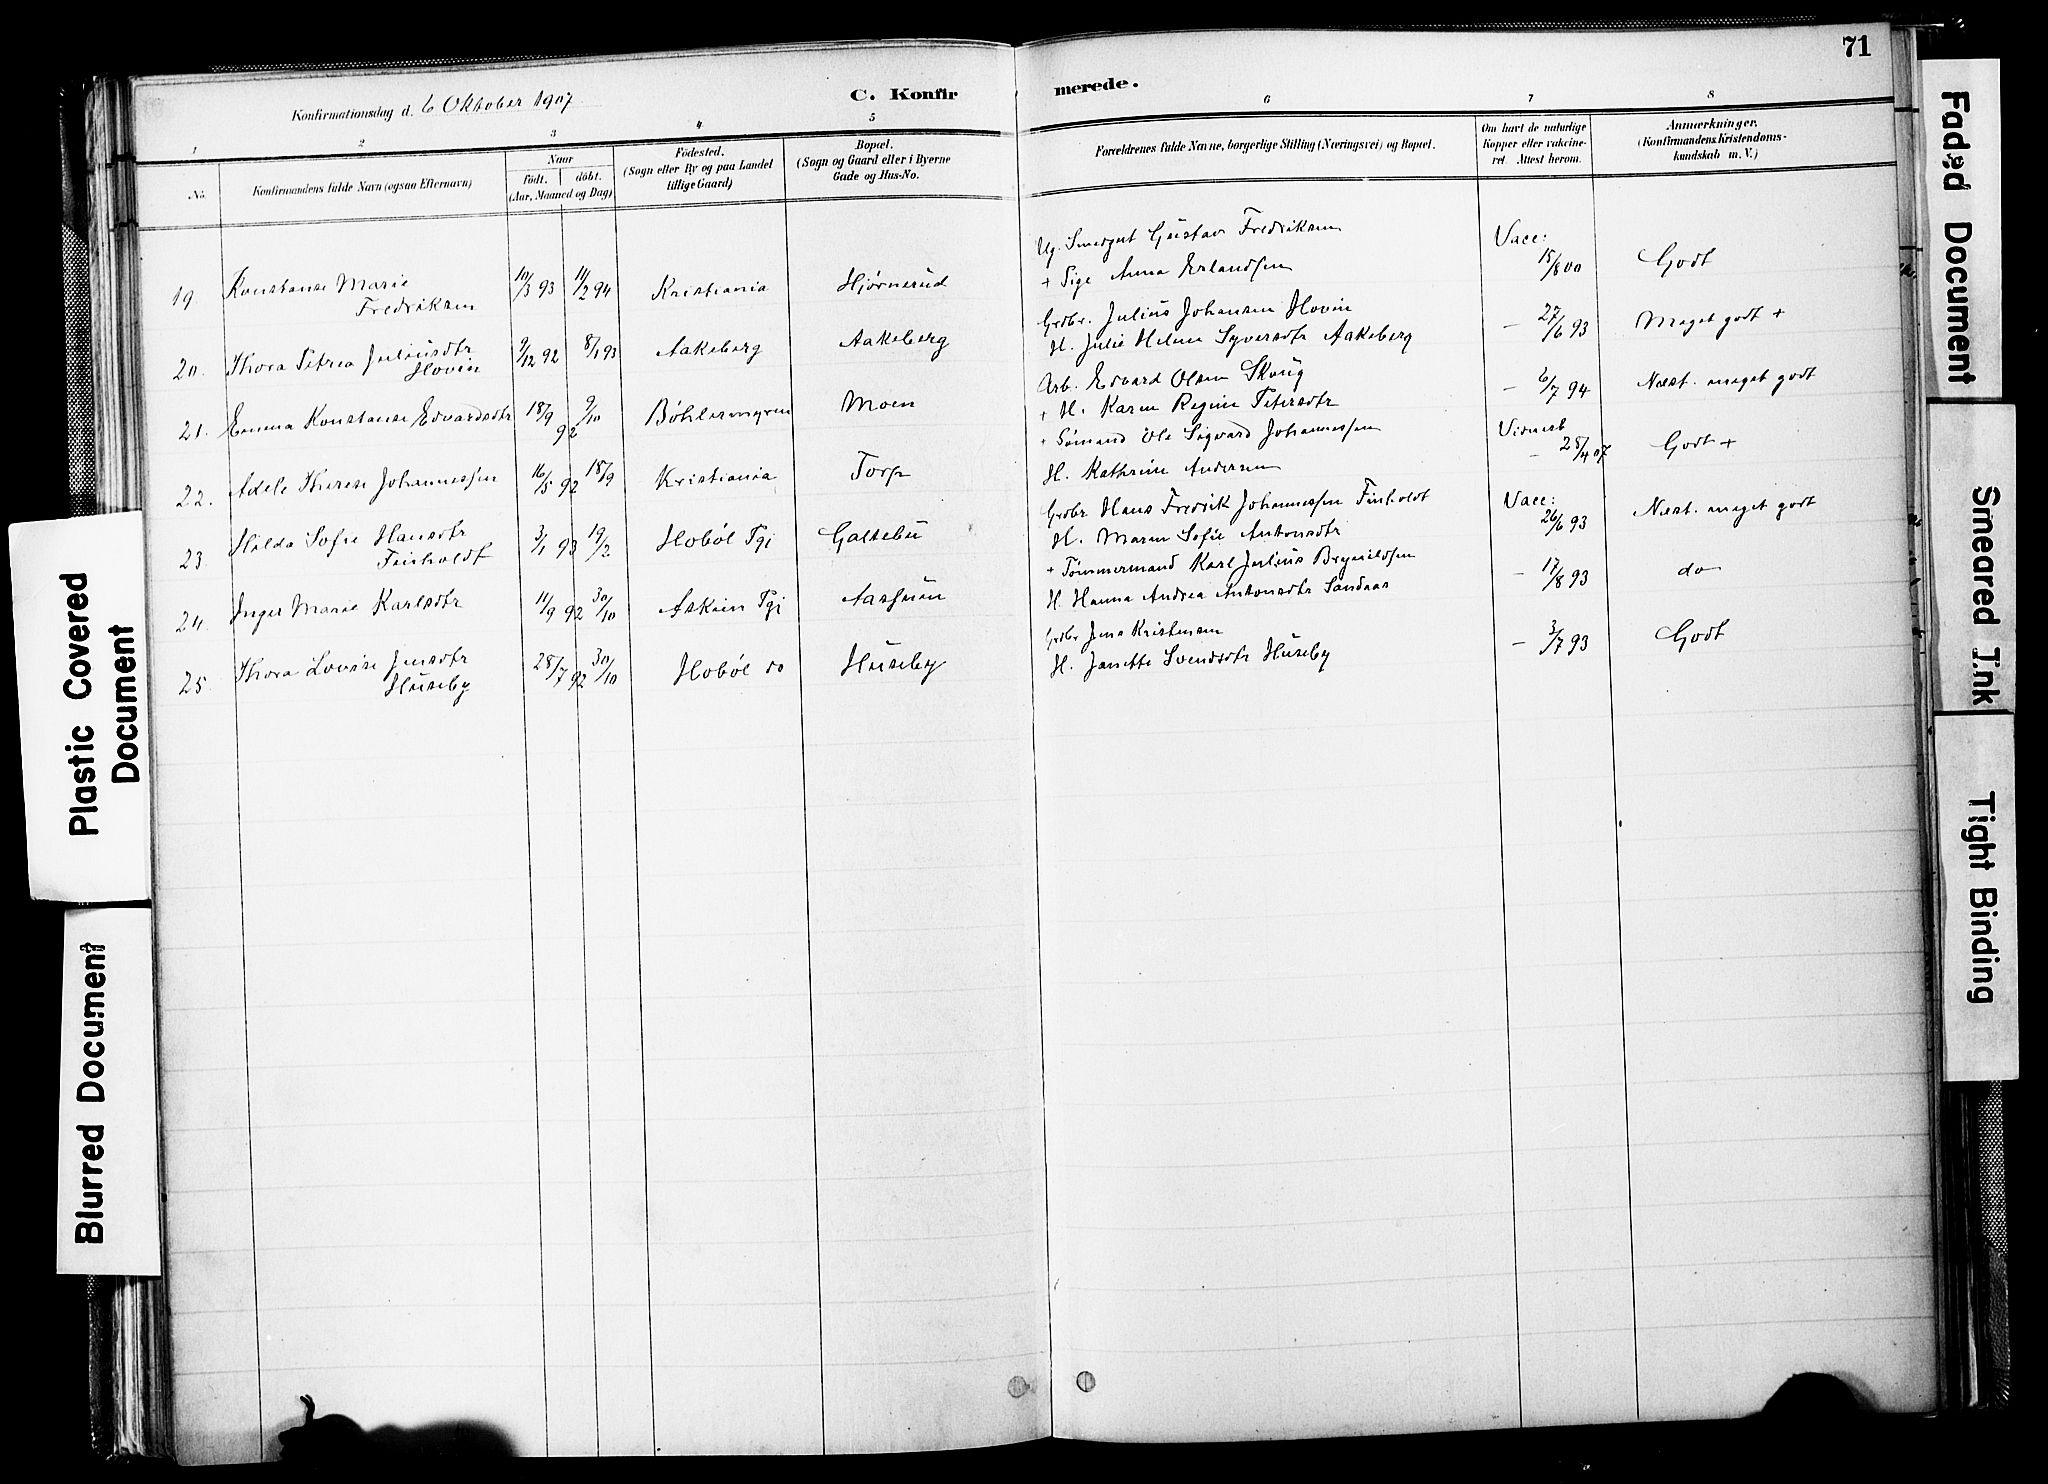 71
Konfirmationsdag d. 6 Oktober 1907
C. Konfirmerede.
1 2 3 4 5 6 7 8
No.
Konfirmandens fulde Navn (ogsaa Efternavn)
Naar
födt. döbt.
(Aar, Maaned og Dag)
Födested.
(Sogn eller By og paa Landet
tillige Gaard)
Bopæl.
(Sogn og Gaard eller i Byerne
Gade og Hus-No.
Forældrenes fulde Navne, borgerlige Stilling (Næringsvei) og Bopæl.
Om havt de naturlige
Kopper eller vakcine-
ret. Attest herom.
Anmærkninger.
(Konfirmandens Kristendoms-
kundskab m. V.)
19. Konstanse Marie
Fredriksen
10/3 93 11/2 94 Kristiania Hjørnerud
Ug. Smedgut Gustav Fredriksen
+ Pige Anna Erlandsen
Vacc:
15/8 00 Godt
20. Thora Petrea Juliusdtr
Hovin
9/12 92 8/1 93 Aakeberg Aakeberg
Grdbr. Julius Johansen Hovin
H. Julie Helene Syversdtr Aakeberg
– 27/6 93 Meget godt +
21. Emma Konstanse Edvardsdtr
18/9 92 9/10 Bøhlermyren Moen
Arb. Edvard Olsen Skoug
+ H. Karen Regine Petersdtr
– 6/7 94 Næst. meget godt
22. Adele Therese Johannessen
16/5 92 18/9 Kristiania Torp
+ Sømand Ole Sigvard Johannessen
H. Kathrine Andersen
– 28/4 07 Godt +
23. Hilda Sofie Hansdtr
Finholdt
3/1 93 19/2 Hobøl Pgj Galtebu
Grdbr Hans Fredrik Johannessen Finholdt
H. Maren Sofie Antonsdtr
Vacc:
26/6 93 Næst. meget godt
24. Inger Marie Karlsdtr
11/9 92 30/10 Askim Pgj
+ Tømmermand Karl Julius Brynildsen
H. Hanna Andrea Antonsdtr Sandaas
– 17/8 93 do
25. Thora Lovise Jensdtr
Huseby
28/7 92 30/10 Hobøl do Huseby
Grdbr Jens Kristensen
H. Janette Svendsdtr Huseby
– 3/7 93 Godt
Plastic Covered
Document
Blurred Document
Faded Document
Smeared Ink
Tight Binding